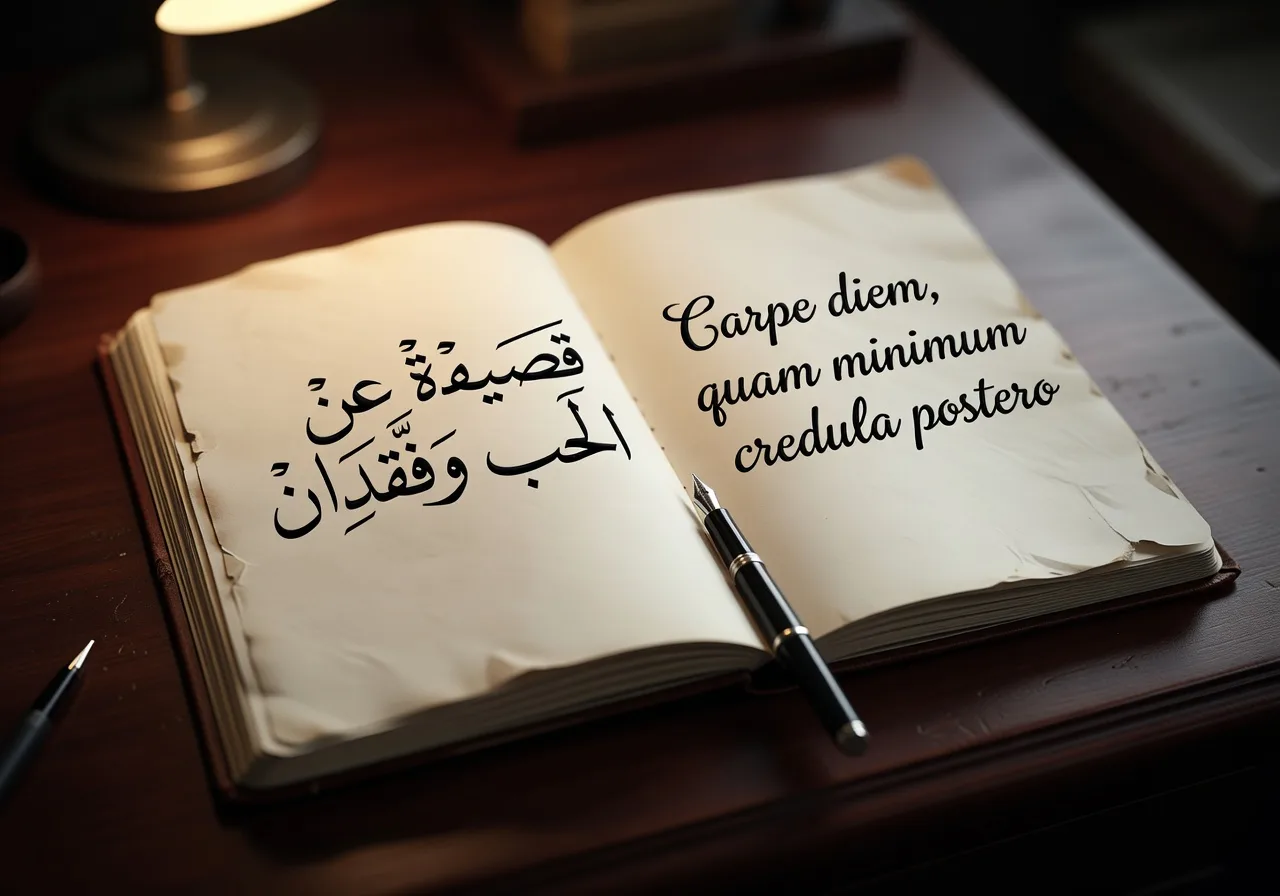 قصَيفْةْ عنْ
الَحب وَفَقّدَِانْ
Carpe diem,
quam minimum
credula postero